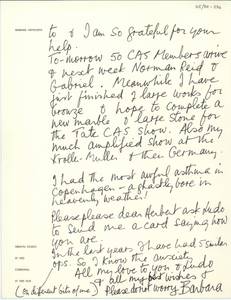 BARBARA HEPWORTH
to & I am so grateful for your
help.
To-morrow 50 CAS Members arrive
& next week Norman Reid &
Gabriel. Meanwhile I have
just finished 2 large works for
bronze & hope to complete a
new marble & large stone for
the Tate CAS Show. Also my
much amplified show at the
Krolle-Muller & then Germany.
I had the most awful asthma in
Copenhagen - a ghastly bore in
heavenly weather!
Please please dear Herbert ask Ludo
to send me a card saying how
you are.
In the last years I have had 5 similar
ops. so I know the anxiety
All my love to you & Ludo
& all my best wishes &
(on different bits of me) Please do not worry Barbara